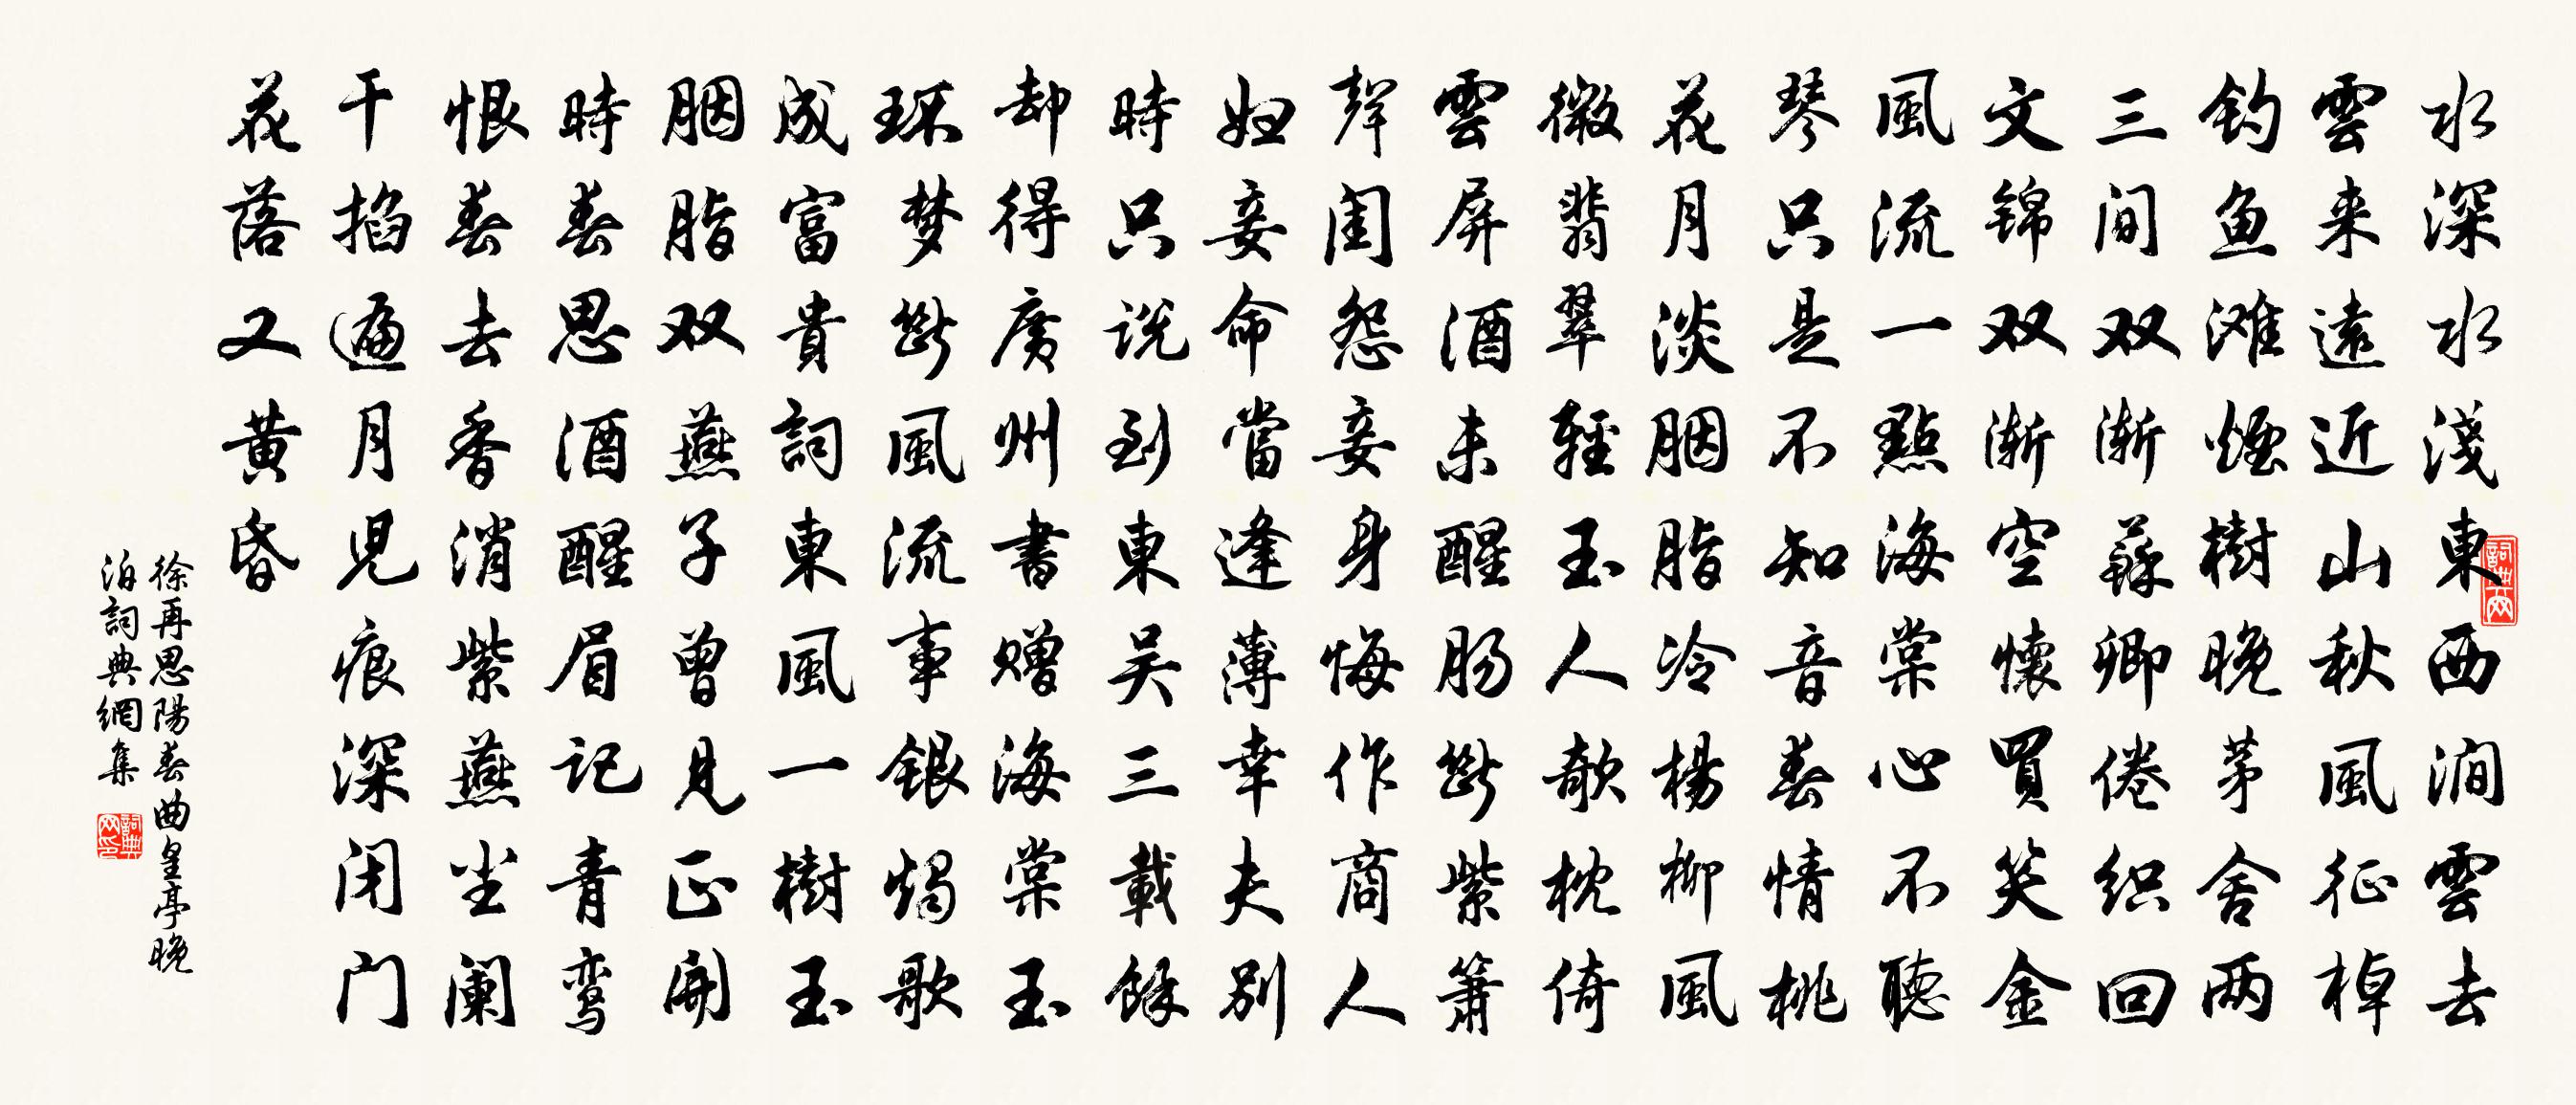 水深水淺東西澗雲去
雲来遠近山秋風征棹
钓鱼滩煙樹晚茅舍两
三间双渐蘇卿倦织回
文锦双渐空懷買笑金
風流一點海棠心不聽
琴只是不知音春情桃
花月淡胭脂冷楊柳風
微翡翠輕玉人欹枕倚
雲屏酒未醒肠斷紫簫
聲闺怨妾身悔作商人
妇妾命當逢薄幸夫别
時只说到東吴三載餘
却得廣州書赠海棠玉
环梦斷風流事銀燭歌
成富貴詞東風一樹玉
胭脂双燕子曾見正開
時春思酒醒眉记青鸾
恨春去香消紫燕坐阑
干掐遍月兒痕深闭门
花落又黄昏
徐再思陽春曲皇亭晚
泊詞典網集
詞典网
詞典网印